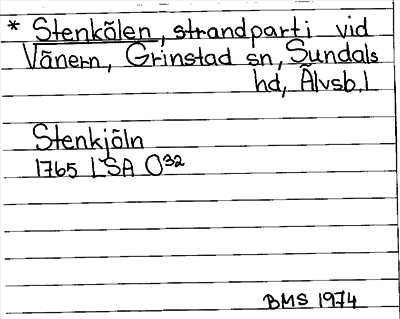 * Stenkölen, strandparti vid
Vänern, Grinstad sn, Sundals
hd, Älvsb. l
Stenkjöln
1765 LSA O32
BMS 1974